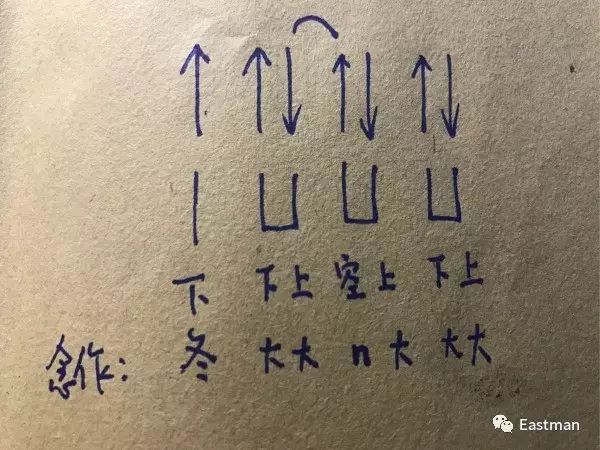 下 下上 空上 下上
念作: 冬 大大 n大 大大
Eastman